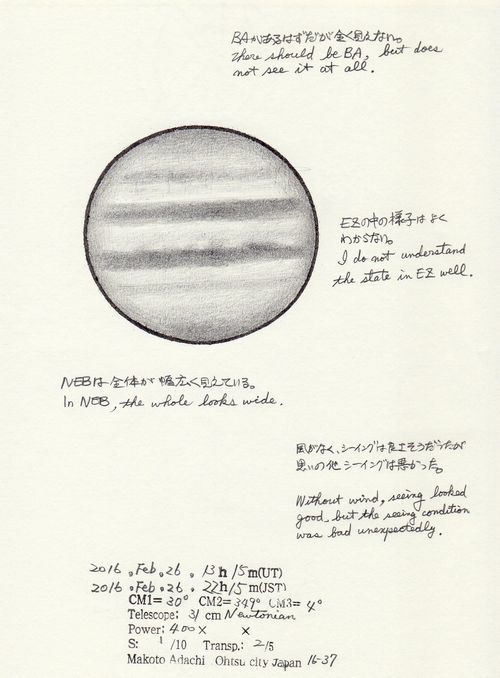 BAがあるはずだが全く見えない。
There should be BA, but does
not see it at all.
EZの中の様子はよく
わからない。
I do not understand
the state in EZ well.
NEBは全体が幅広く見えている。
In NEB, the whole looks wide.
風がなく、シーイングは良さそうだったが
思いの他シーイングは悪かった。
Without wind, seeing looked
good, but the seeing condition
was bad unexpectedly.
2016, Feb, 26, 13h 15m(UT)
2016, Feb, 26, 22h 15m(JST)
CM1= 30° CM2= 349° CM3= 4°
Telescope: 31 cm Newtonian
Power: 400× ×
S: 1 /10 Transp.: 2/5
Makoto Adachi Ohtsu city Japan 16-37